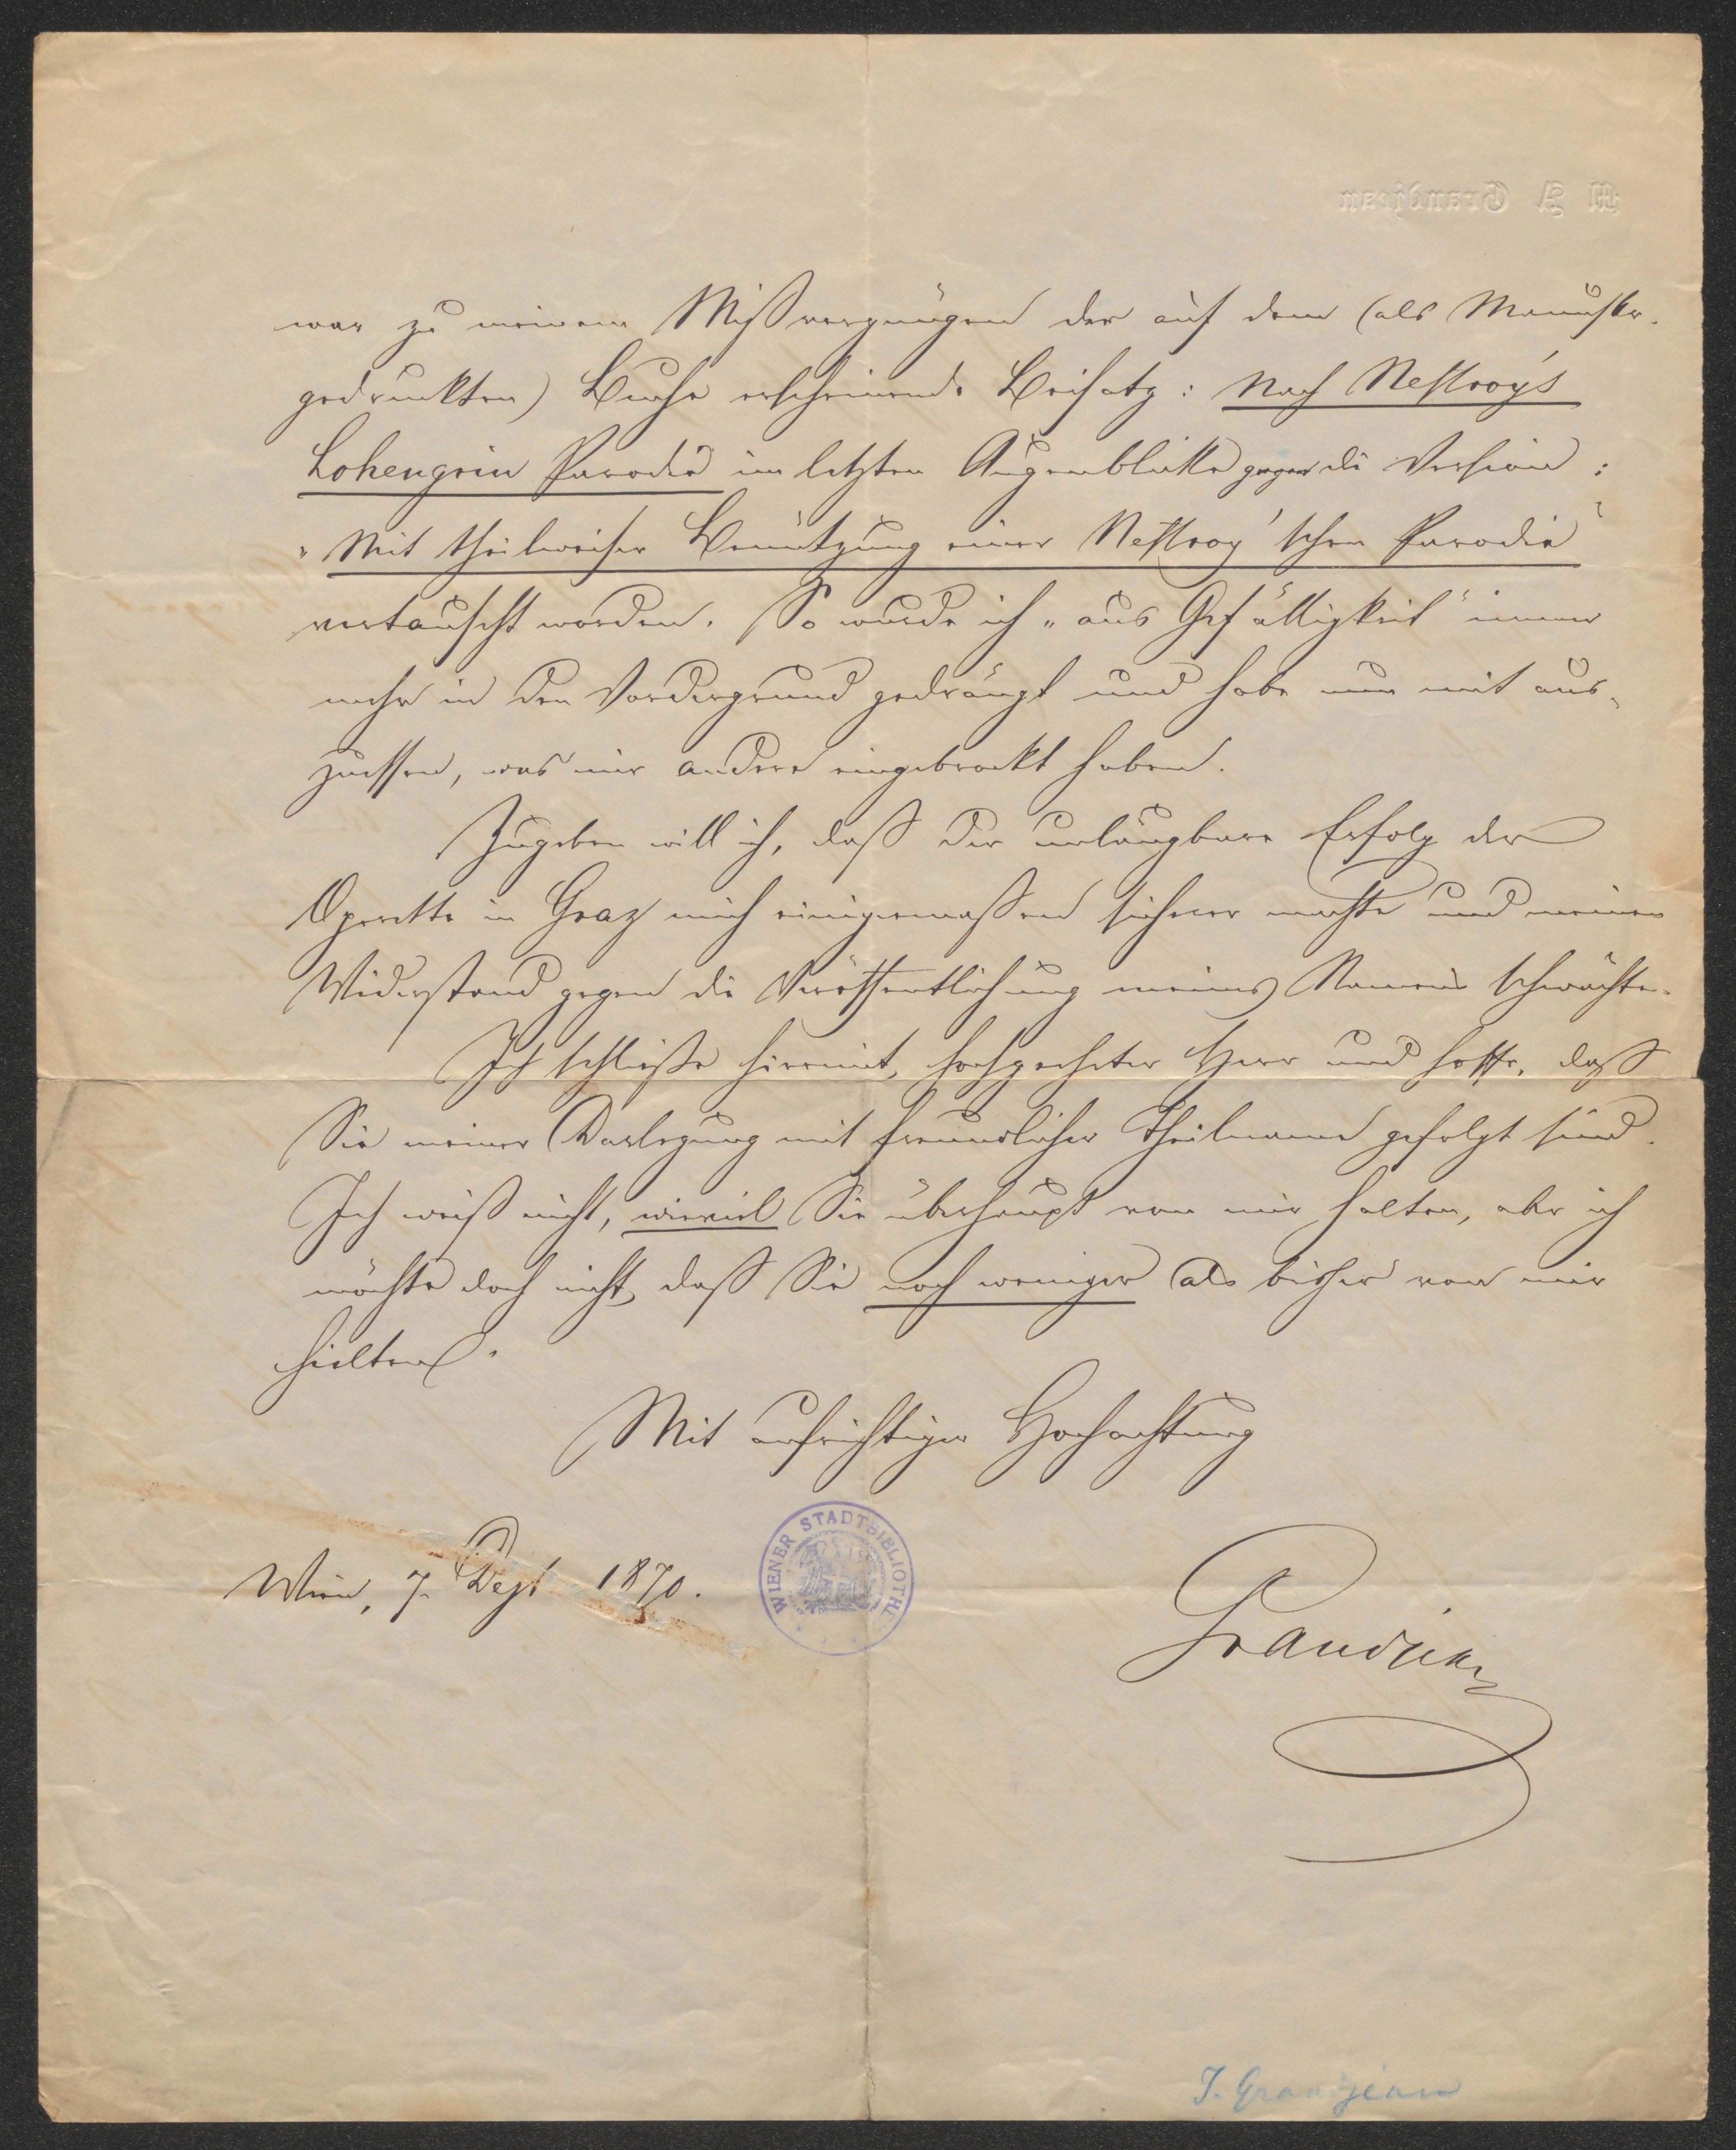 M A Grandjean
war zu meinem Mißvergnügen der auf dem (als Manuskr.
gedruckten) Buche erscheinende Beisatz: Nach Nestroy's
Lohengrin Parodie im letzten Augenblicke gegen die Version:
"Mit theilweiser Benützung einer Nestroy'schen Parodie"
vertauscht worden. So wurde ich „aus Gefälligkeit" immer
mehr in den Vordergrund gedrängt und habe nun mit aus-
zuessen, was mir andere eingebrockt haben.
Zugeben will ich, daß der unläugbare Erfolg der
Operette in Graz mich einigermaßen sicherer machte und meinen
Widerstand gegen die Veröffentlichung meines Namens schwächte.
Ich schließe hiermit, hochgeehrter Herr und hoffe, daß
Sie meiner Darlegung mit freundlicher Theilname gefolgt sind.
Ich weiß nicht, wieviel Sie überhaupt von mir halten, aber ich
möchte doch nicht, daß Sie noch weniger als bisher von mir
hielten.
Mit aufrichtiger Hochachtung
Wien, 7. Dez. 1870.
WIENER STADTBIBLIOTH
Grandjean
J. Grandjean